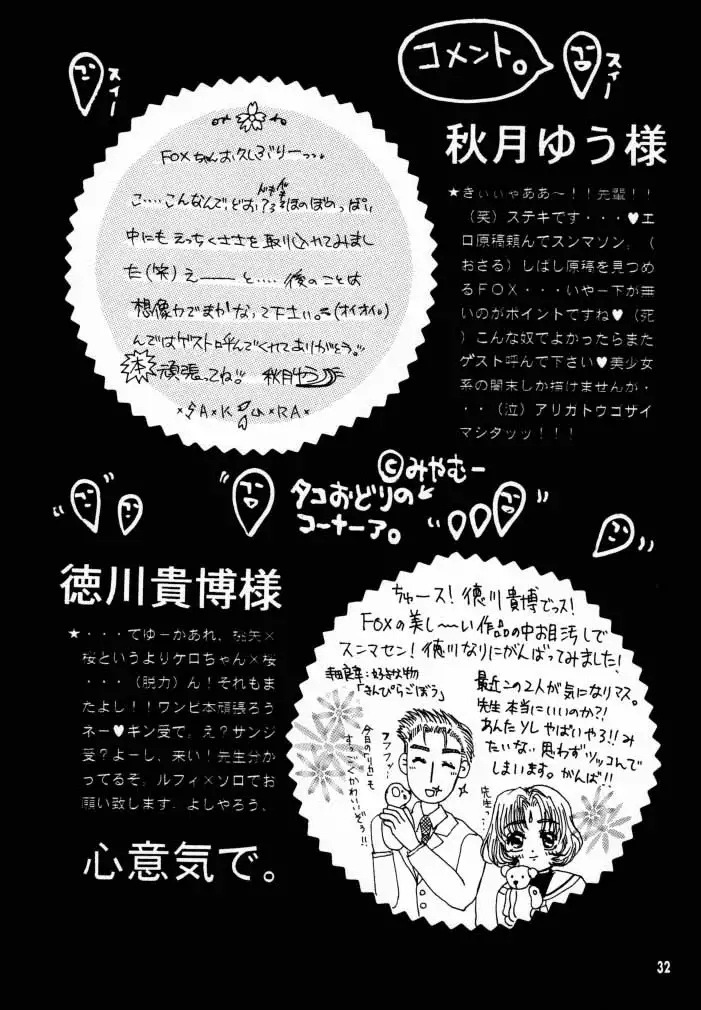 コメント。
スィー
スィー
秋月ゆう様
FOXちゃんお久しぶりーっっ。
こ‥‥こんなんでどお?ろそほのぼのっぽい
中にもえっちくささを取り入れてみまし
た(笑)えーーーと‥‥後のことは
想像力でまかなって下さい。(オイオイ。)
んではゲストに呼んでくれてありがとう。
本頑張ってね。秋月ゆう
×SAKURA×
★きぃぃゃああ~!!先輩!!
(笑)ステキです・・・♥エ
ロ原稿頼んでスンマソン。(
おさる)しばし原稿を見つめ
るFOX・・・いやー下が無
いのがポイントですね♥(死
)こんな奴でよかったらまた
ゲスト呼んで下さい♥美少女
系の闇末しか描けませんが・
・・(泣)アリガトウゴザイ
マシタッッ!!!
©みやむー
タコおどりの
コーナーア。
徳川貴博様
★・・・てゆーかあれ、桜矢×
桜というよりケロちゃん×桜
・・・(脱力)ん!それもま
たよし!!ワンピ本頑張ろう
ネー♥キン受で。え?サンジ
受?よーし、来い!先生分か
ってるぞ。ルフィ×ゾロでお
願い致します。よしやろう、
心意気で。
ちゅース!徳川貴博でっス!
FOXの美し~い作品の中お目汚しで
スンマセン!徳川なりにがんばってみました!
寺田良幸:好きな物
「きんぴらごぼう」
最近この2人が気になりマス。
先生本当にいいのか?!
あんたソレやばいやろ!!み
たいな。思わずツッコんで
しまいます。がんば!!
フフフッ
今日の「リカ」も
すっごくかわいいぞぅ!!
先生っ…
32